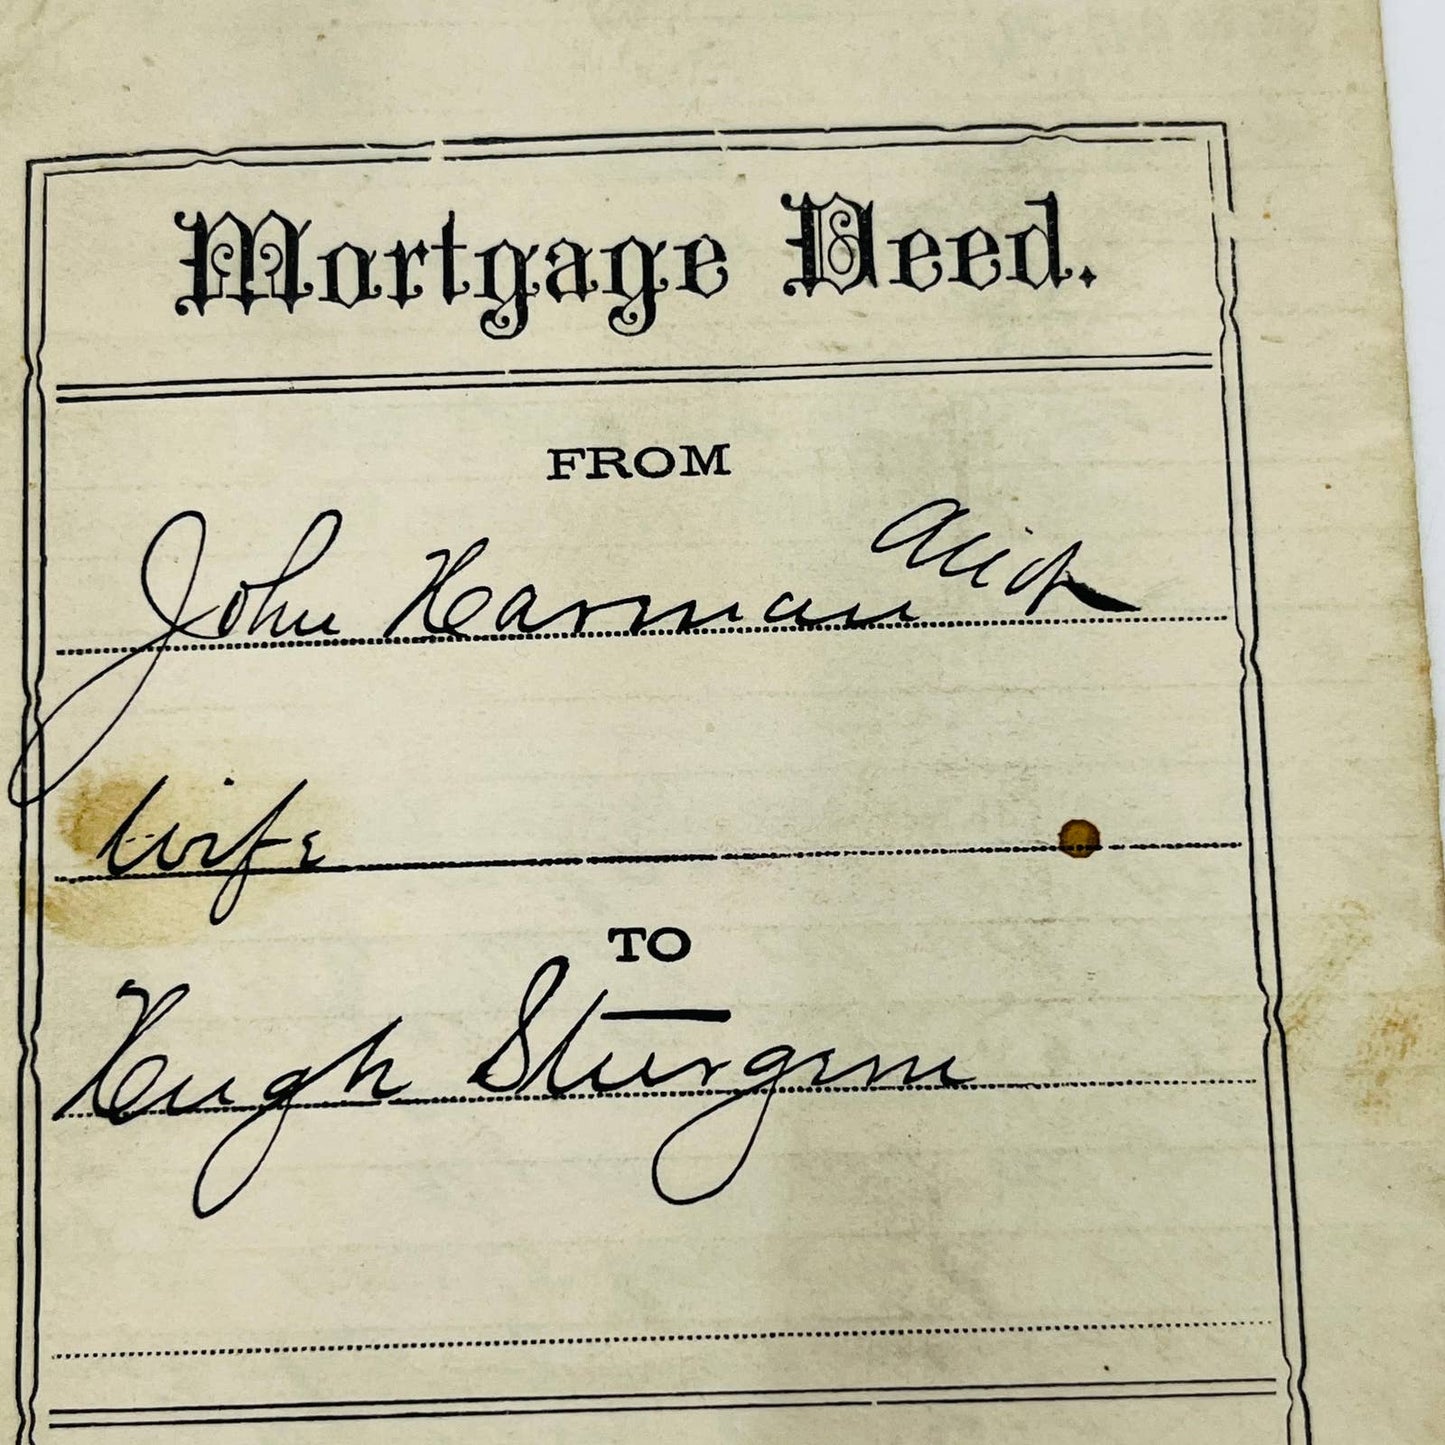 Mortgage Deed.
FROM
John Harman and
Wife
TO
Hugh Sturgem